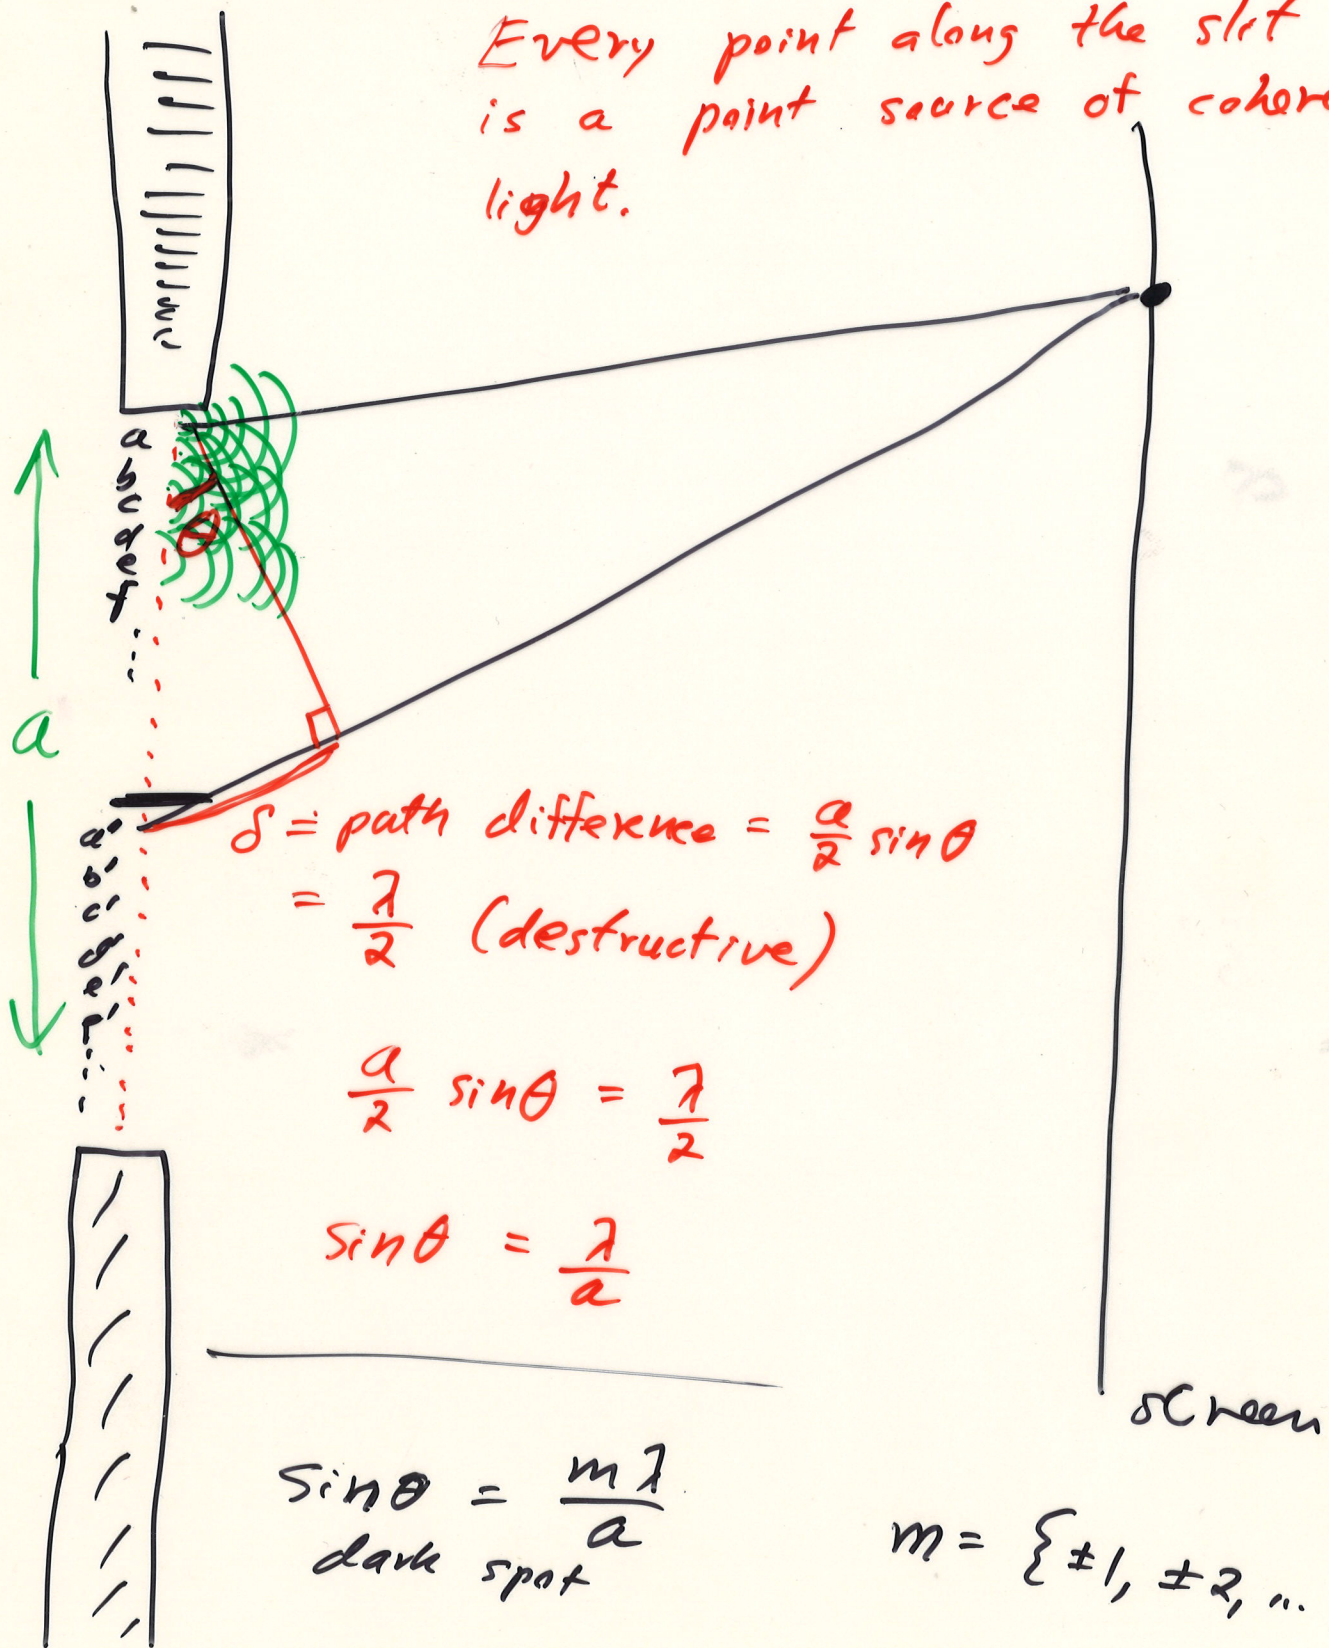 Every point along the slit
is a point source of cohere
light.
a
b
c
d
e
f
θ
a
a'
b'
c'
d'
e'
f'
δ = path difference = a/2 sin θ
= λ/2 (destructive)
a/2 sin θ = λ/2
sin θ = λ/a
screen
sin θ = mλ/a
dark spot
m = {±1, ±2, ...